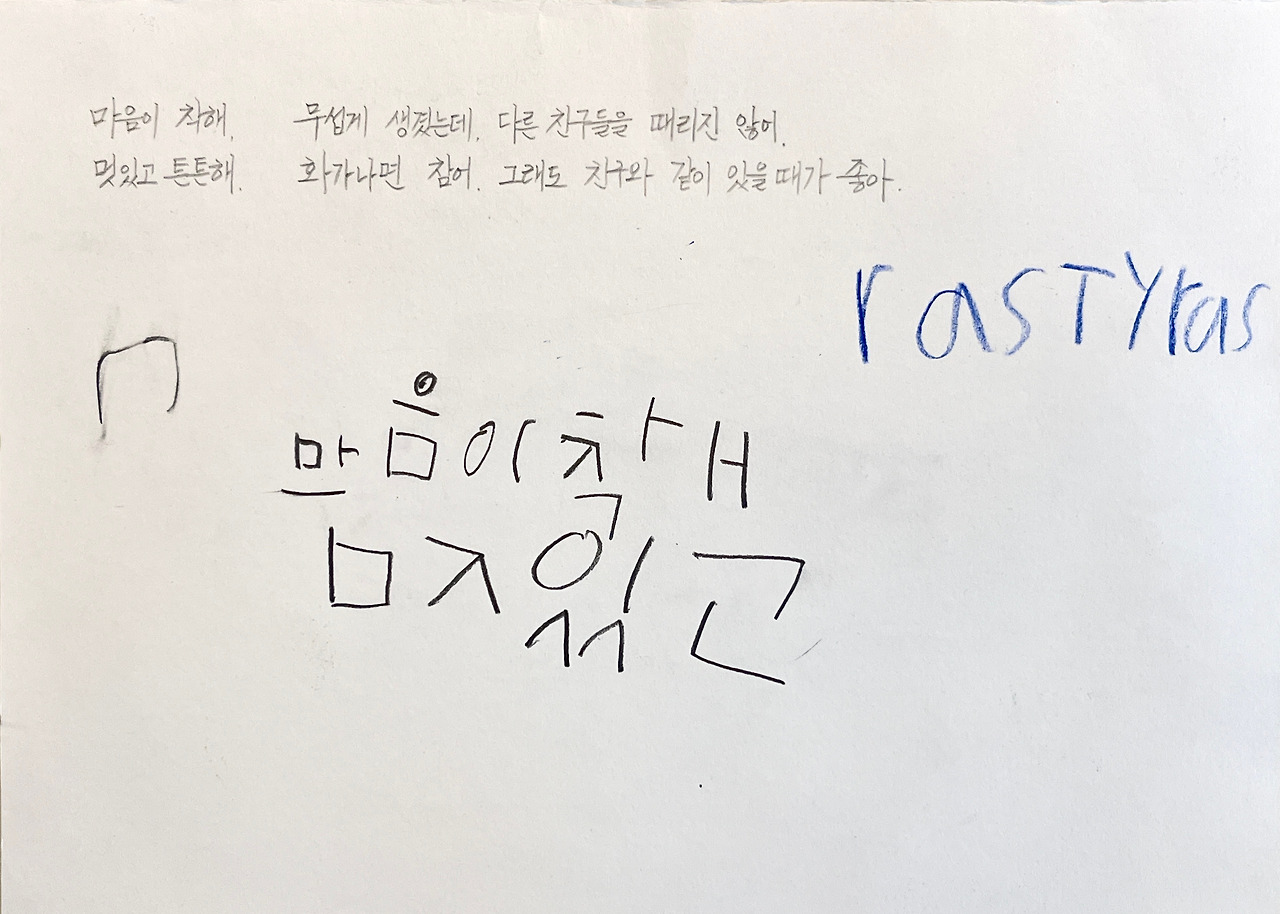 마음이 착해. 무섭게 생겼는데. 다른 친구들을 때리진 않어.
멋있고 튼튼해. 화가나면 참어. 그래도 친구와 같이 있을때가 좋아.
rasTYras
마음이착해
멋있고